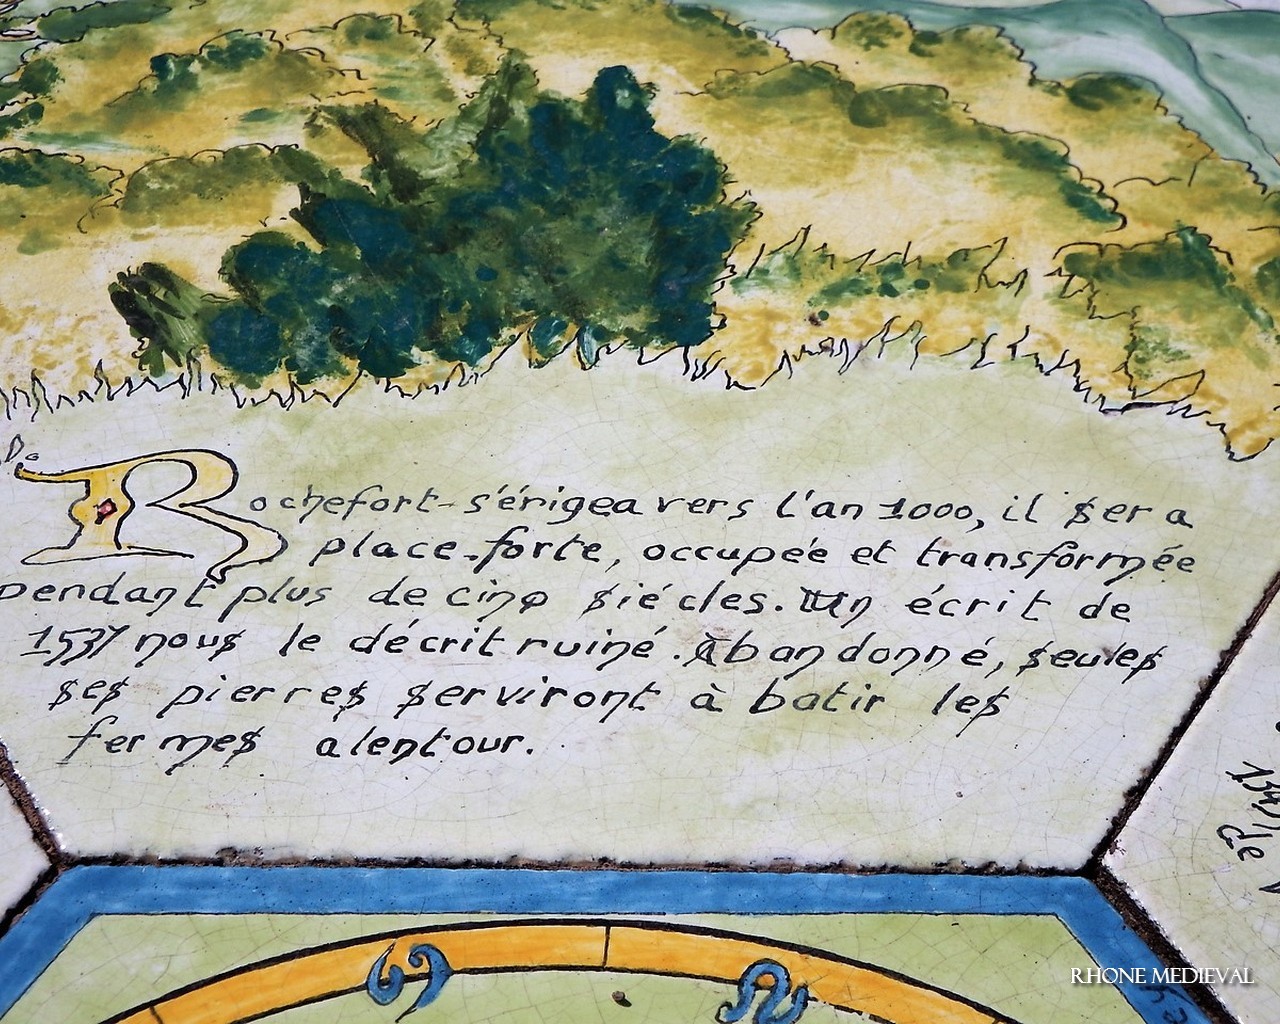 Rochefort s'érigea vers l'an 1000, il sera
place-forte, occupée et transformée
pendant plus de cinq siécles. Un écrit de
1537 nous le décrit ruiné. Abandonné, seules
ses pierres serviront à batir les
fermes alentour.
de
RHONE MEDIEVAL